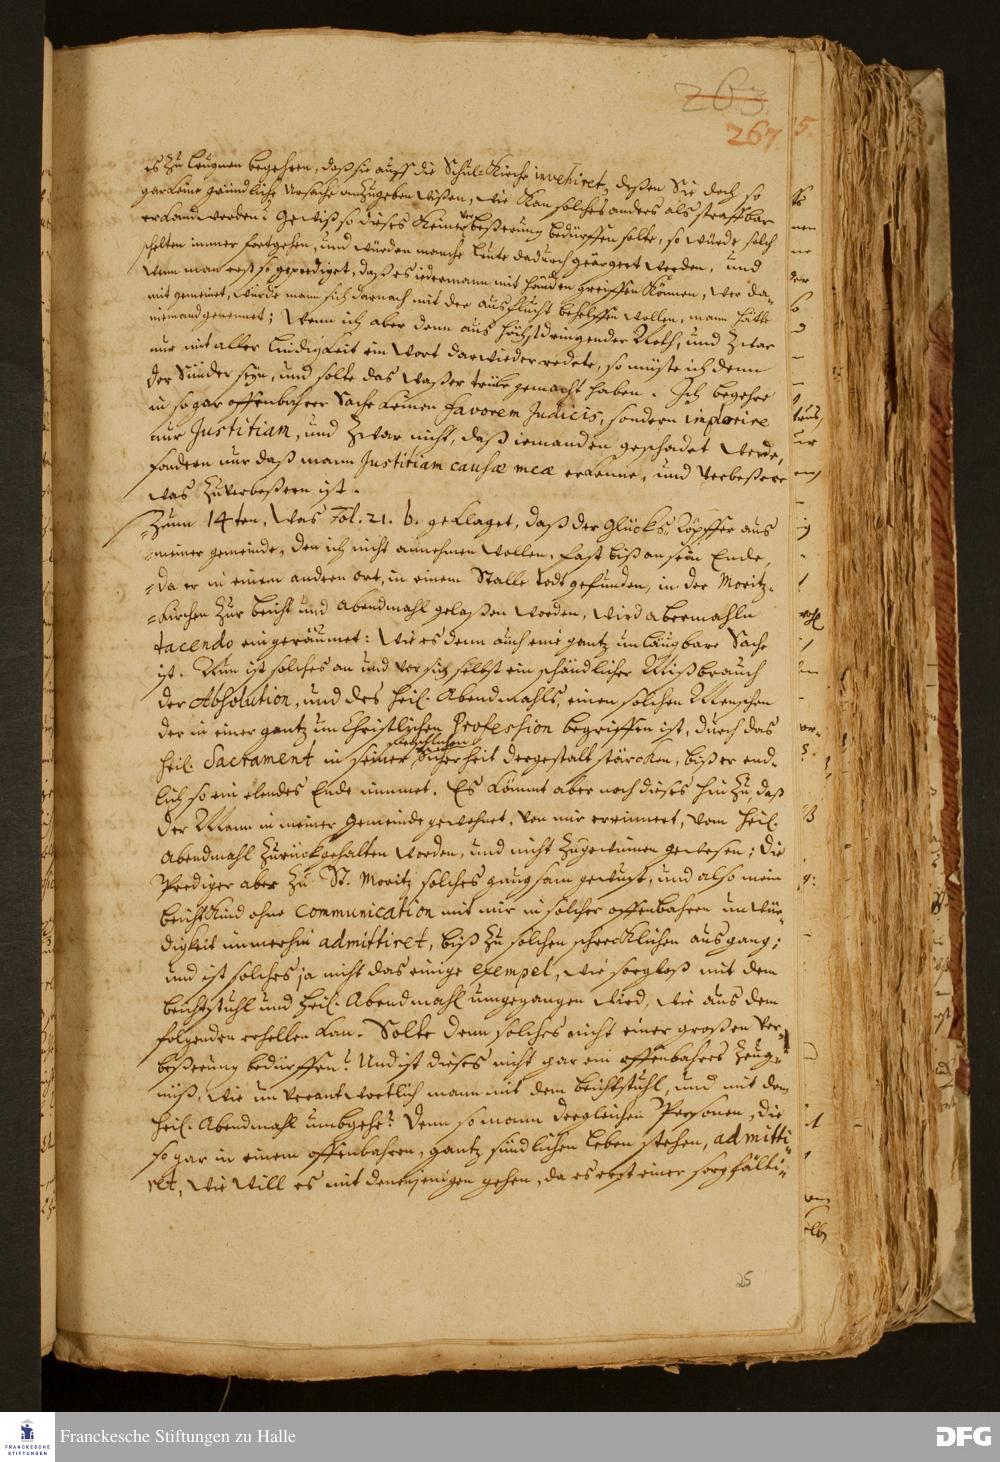 263.
267
es zu leugnen begehren, daß sie auff die Schul-Kirche invehiret, deßen Sie doch so
gar keine gründliche Ursache anzugeben wißen, wie kan solches anders als straffbar
erkand werden? Gewiß so dieses keiner Verbeßerung bedürffen solte, so würde solch
schelten immer fortgehen, und würden manche Leute dadurch geärgert werden, und
wenn man erst so geprediget, daß es iedermann mit Händen greiffen können, wer da-
mit gemeinet, würde mann sich darnach mit der ausflucht behelffen wollen, mann hätte
niemand genennet; Wenn ich aber denn aus höchstdringender Noth, und zwar
nur mit aller Lindigkeit ein Wort darwieder redete, so müste ich denn
der Sünder seyn, und solte das Waßer trübe gemacht haben. Ich begehre
in so gar offenbahrer Sache keinen favorem Judicis, sondern implorire
nur Justitiam, und zwar nicht, daß iemanden geschadet werde,
sondern nur daß mann Justitiam causæ meæ erkenne, und verbeßere
was zuverbeßern ist.
Zum 14ten, Was Fol. 21. b. geklaget, daß der Glücks-Töpffer aus
meiner gemeinde, den ich nicht annehmen wollen, fast biß an sein Ende,
da er in einem andern ort, in einem Stalle todt gefunden, in der Moritz-
Kirchen zur beicht und Abendmahl gelaßen worden, wird abermahln
tacendo eingeräumet: wie es denn auch eine gantz unläugbare Sache
ist. Nun ist solches an und vor sich selbst ein schändlicher Mißbrauch
der Absolution, und des Heil. Abendmahls, einen solchen Menschen
der in einer gantz unChristlichen Profession begriffen ist, durch das
Heil. Sacrament in seiner Sicherheit dergestalt stärcken, biß er end-
lich so ein elendes Ende nimmet. Es kömmt aber noch dieses hinzu, daß
der Mann in meiner Gemeinde gewohnet, von mir erinnert, vom Heil.
Abendmahl zurückgehalten worden, und nicht zugewinnen gewesen; die
Prediger aber zu St. Moritz solches gnugsam gewust, und also mein
beichtkind ohne Communication mit mir in solcher offenbahren unwür-
digkeit immerhin admittiret, biß zu solchen schrecklichen ausgang;
und ist solches ja nicht das einige exempel, wie sorgloß mit dem
beichtstuhl und Heil. Abendmahl umgegangen wird, wie aus dem
folgenden erhellen kan. Solte denn solches nicht einer großen Ver-
beßerung bedürffen? Und ist dieses nicht gar ein offenbahres Zeug-
niß, wie unverantwortlich mann mit dem beichtstuhl, und mit dem
Heil. Abendmahl umbgehe? Denn so mann dergleichen Personen, die
so gar in einem offenbahren, gantz sündlichen Leben stehen, admitti-
ret, wie will es mit denenjenigen gehen, da es erst einer sorgfälti-
25
FRANCKESCHE
STIFTUNGEN
Franckesche Stiftungen zu Halle
DFG